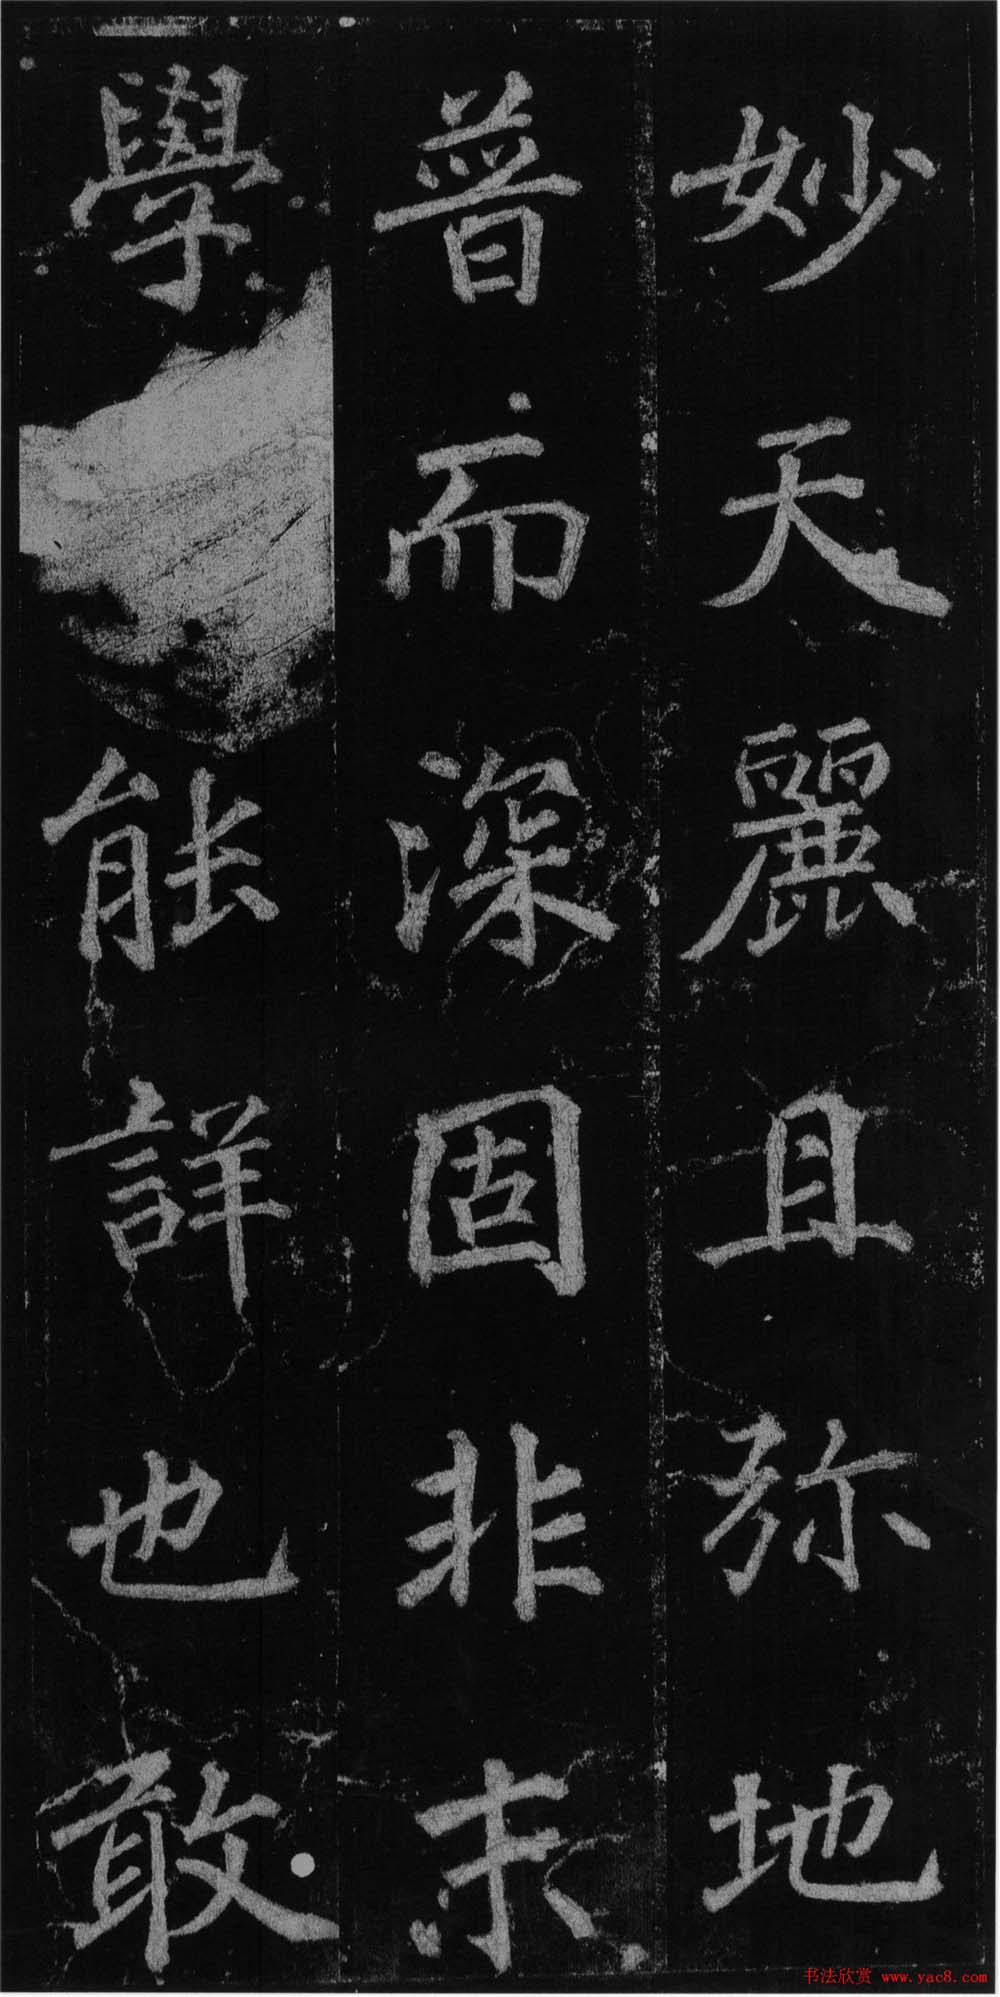 妙天麗且弥地
普而深固非末
學能詳也敢
书法欣赏 www.yac8.com